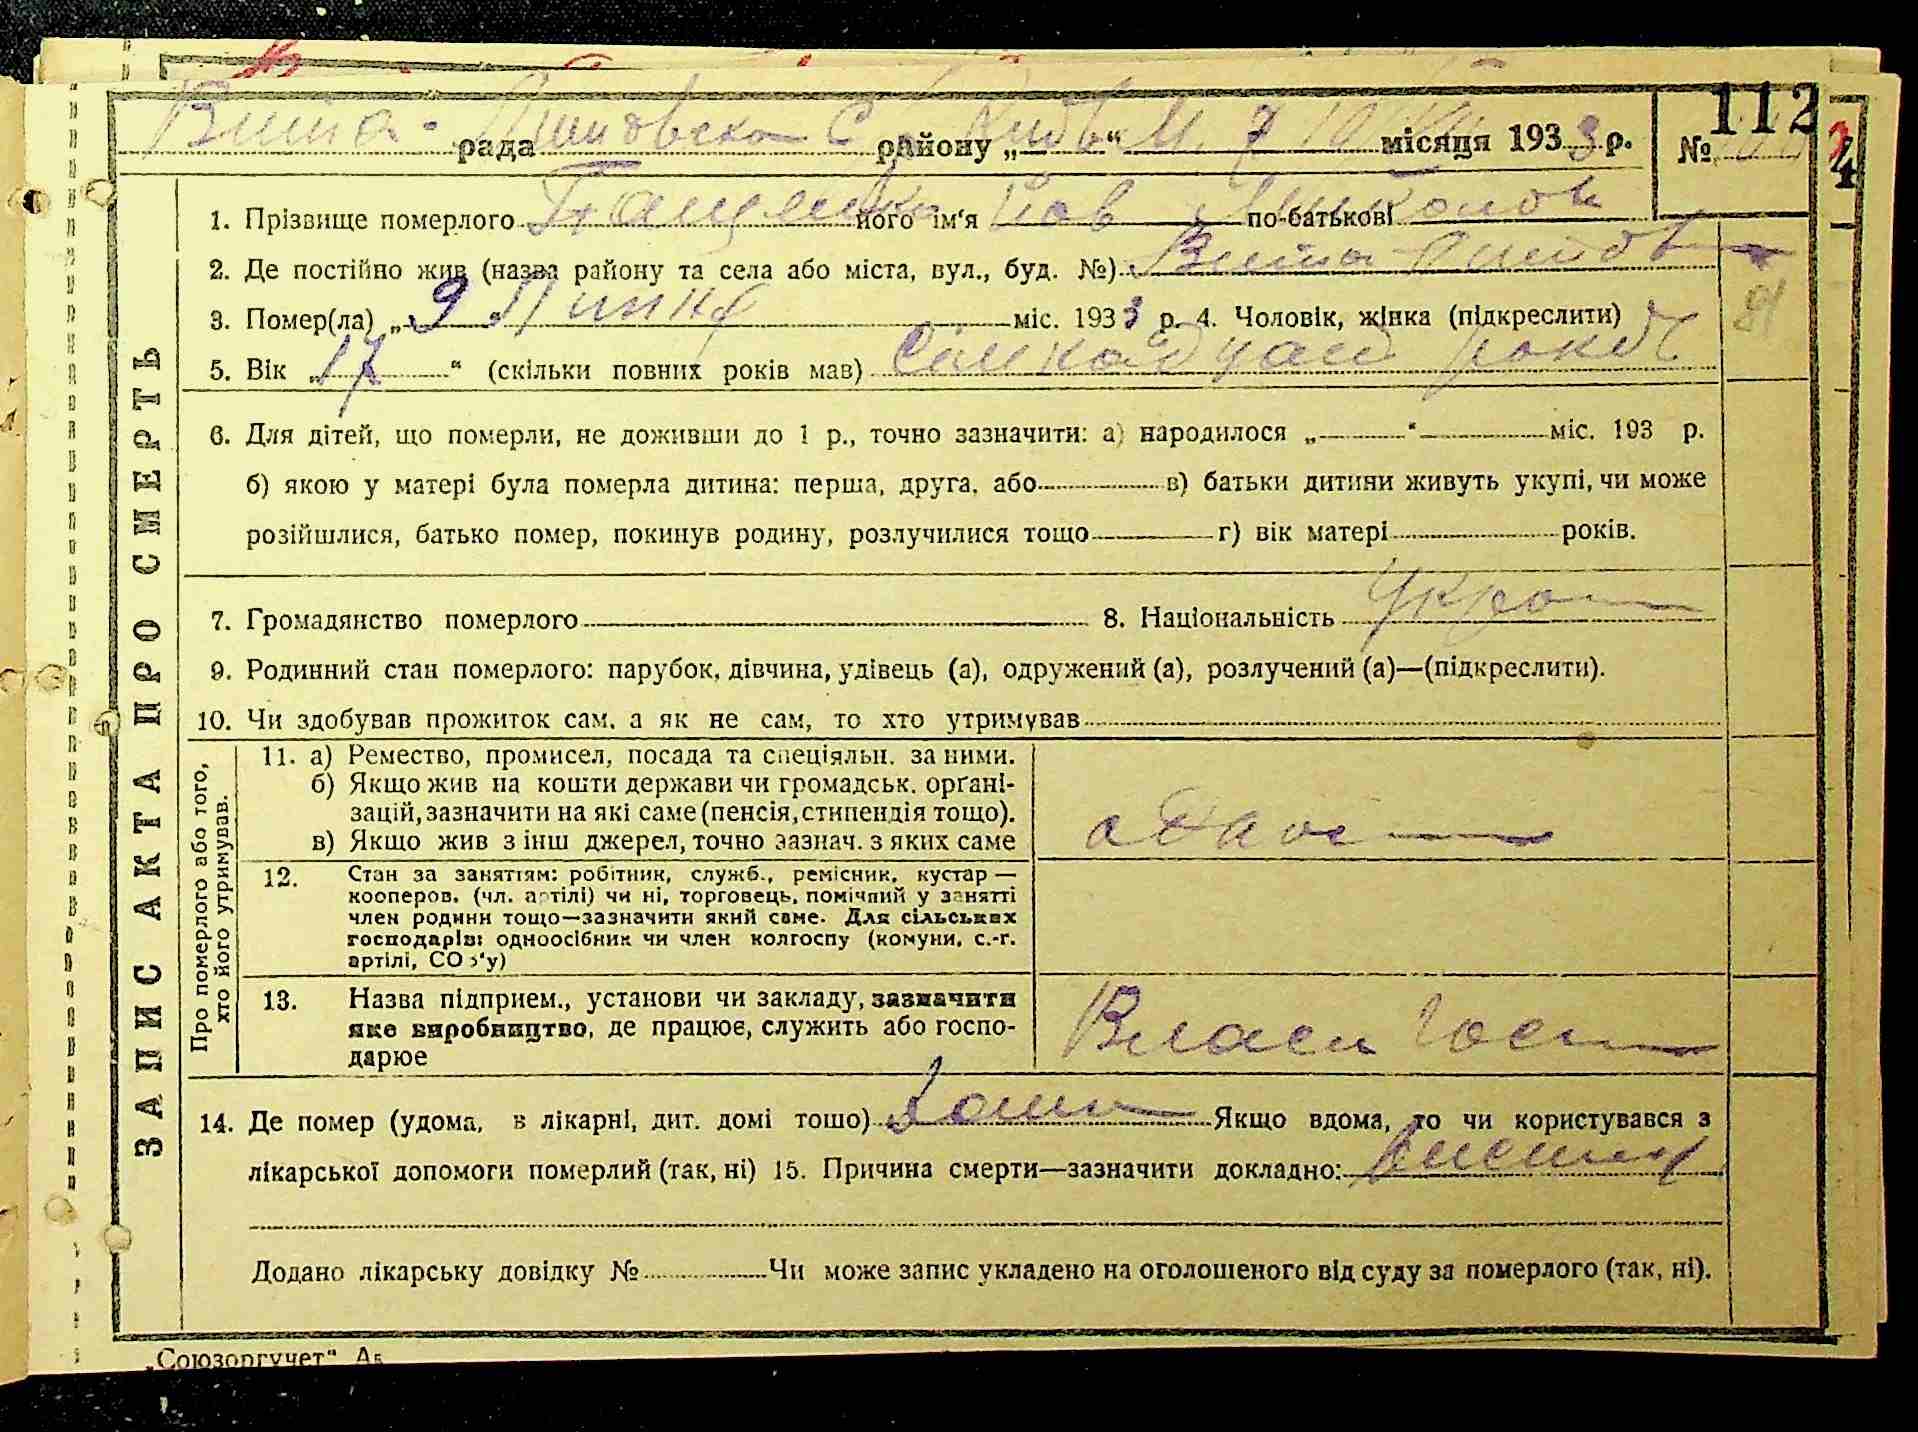 112
Вита-Поштовска С рада району „ “ Київ М. 7 місяця 1933 р. №
1. Прізвище померлого Пащенко його ім‘я Іов по-батькові
2. Де постійно жив (назва району та села або міста, вул., буд. №) Вита-Пштов
3. Помер(ла) „ 9 Липня міс. 1933 р. 4. Чоловік, жінка (підкреслити)
5. Вік „ 17 “ (скільки повних років мав) Сімнадцать років
6. Для дітей, що померли, не доживши до 1 р., точно зазначити: а) народилося „ “ міс. 193 р.
б) якою у матері була померла дитина: перша, друга, або в) батьки дитини живуть укупі, чи може
розійшлися, батько помер, покинув родину, розлучилися тощо г) вік матері років.
7. Громадянство померлого 8. Національність Укра
9. Родинний стан померлого: парубок, дівчина, удівець (а), одружений (а), розлучений (а)—(підкреслити).
10. Чи здобував прожиток сам, а як не сам, то хто утримував
11. а) Ремество, промисел, посада та спеціяльн. за ними.
б) Якщо жив на кошти держави чи громадськ. орґані-
зацій, зазначити на які саме (пенсія, стипендія тощо).
в) Якщо жив з інш джерел, точно зазнач. з яких саме
12. Стан за заняттям: робітник, служб., ремісник, кустар —
кооперов. (чл. артілі) чи ні, торговець, помічний у занятті
член родини тощо—зазначити який саме. Для сільських
господарів: одноосібник чи член колгоспу (комуни, с.-г.
артілі, СО з‘у)
13. Назва підприєм., установи чи закладу, зазначити
яке виробництво, де працює, служить або госпо-
дарює
Власн Госп
14. Де помер (удома, в лікарні, дит. домі тощо) Дома Якщо вдома, то чи користувався з
лікарської допомоги померлий (так, ні) 15. Причина смерти—зазначити докладно:
Додано лікарську довідку № Чи може запис укладено на оголошеного від суду за померлого (так, ні).
ЗАПИС АКТА ПРО СМЕРТЬ
Про померлого або того,
хто його утримував.
„Союзоргучет“